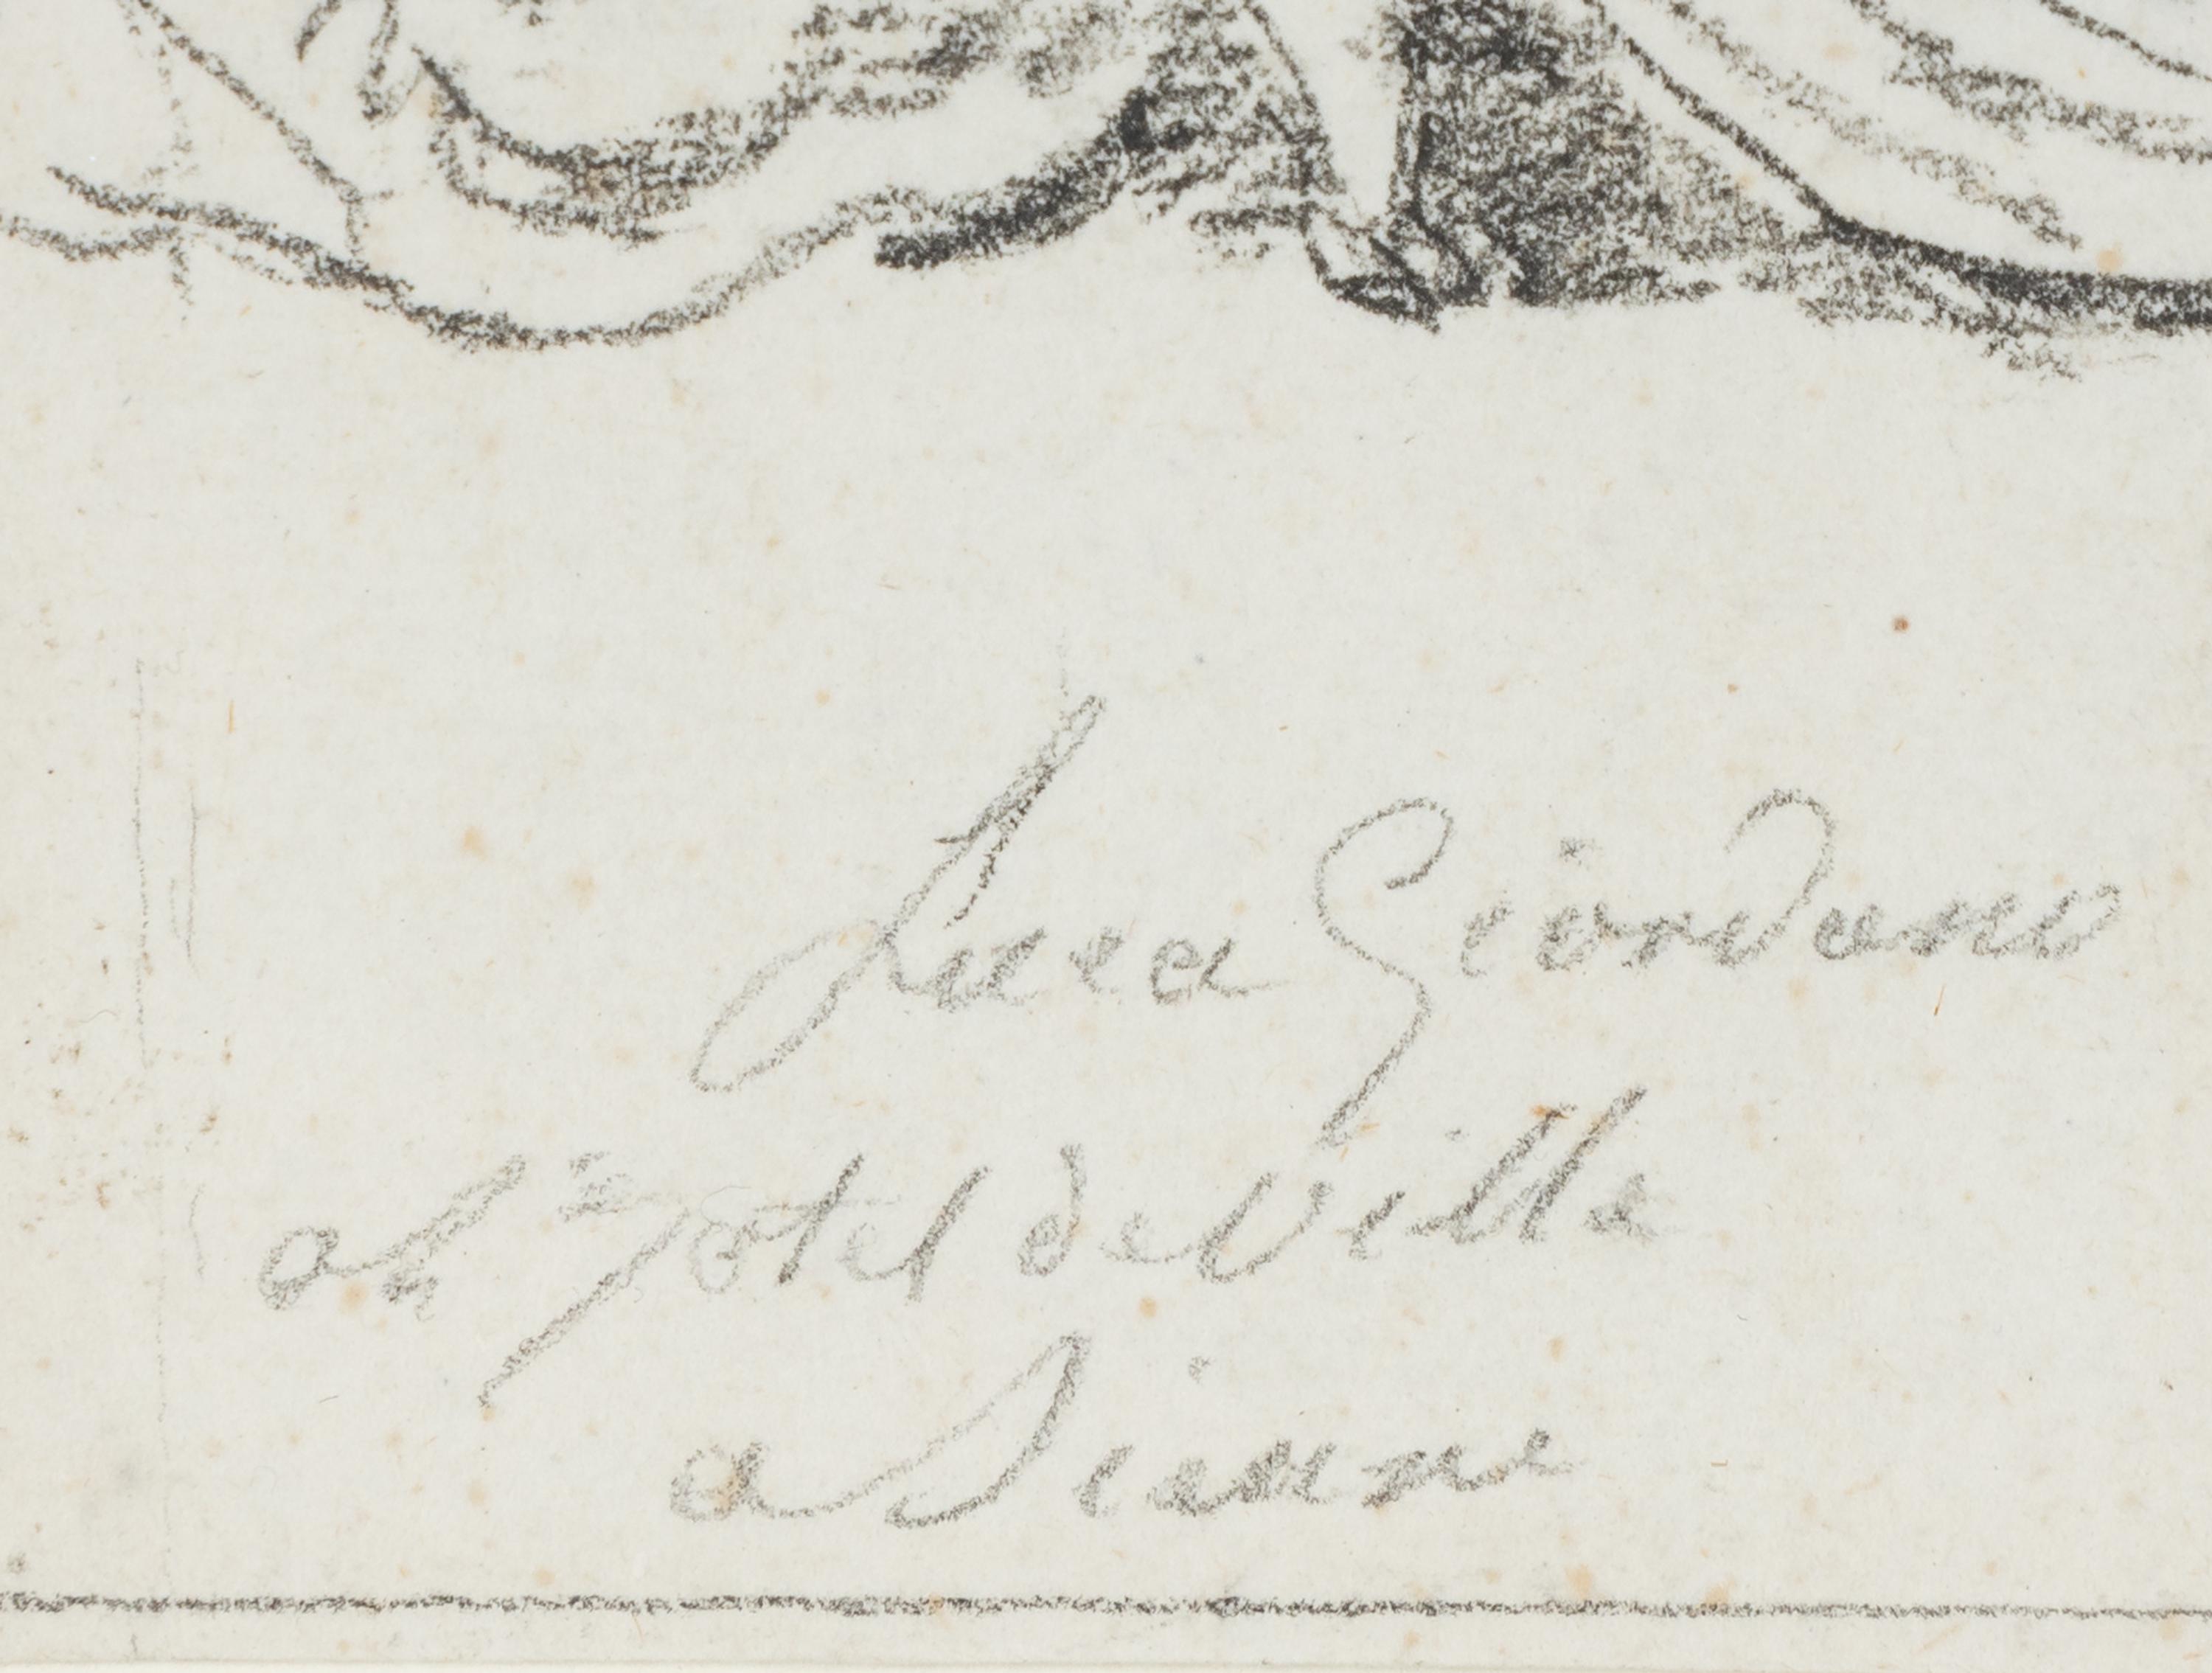 Luca Giordano
al'hotel de Ville
a Sienne